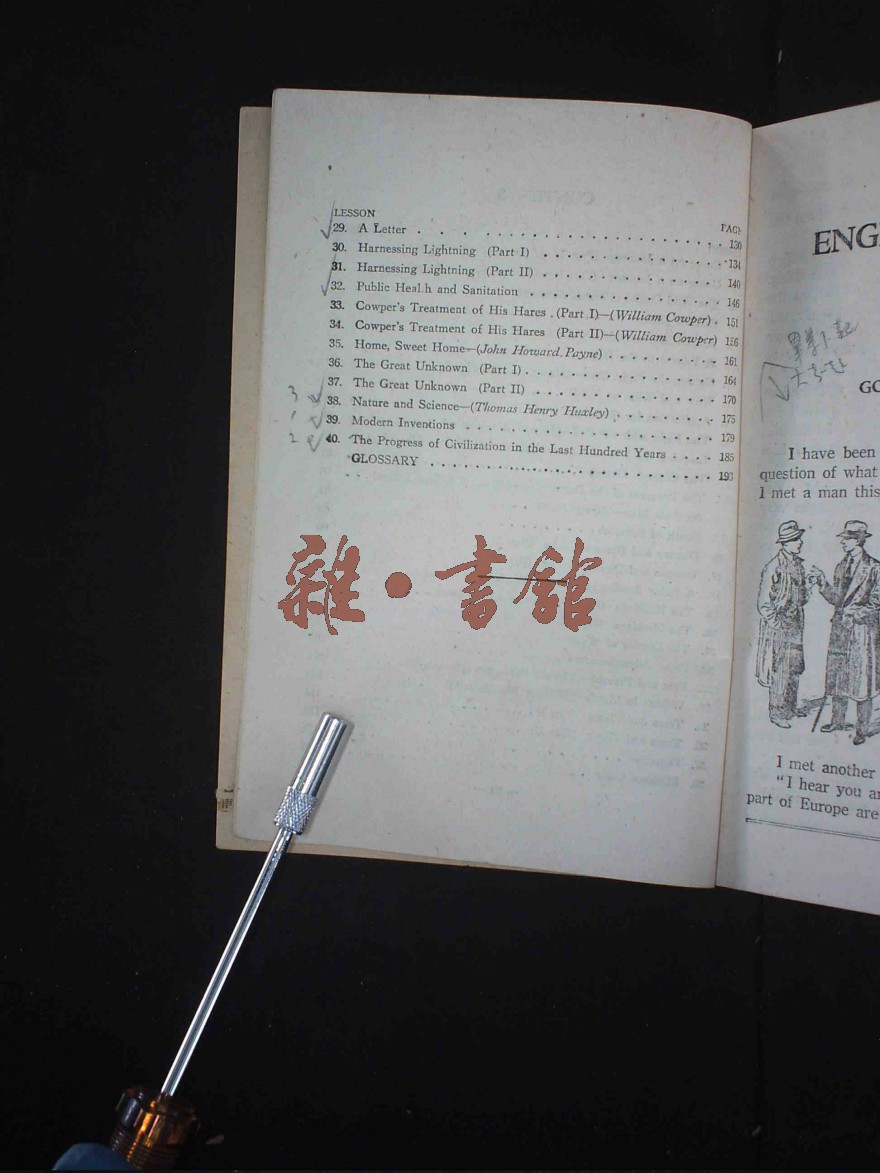 LESSON PAGE
29. A Letter . . . . . . . . . . . . . . . . . . . . 130
30. Harnessing Lightning (Part I) . . . . . . . . . . . . 134
31. Harnessing Lightning (Part II) . . . . . . . . . . . . 140
32. Public Heal h and Sanitation . . . . . . . . . . . . 146
33. Cowper's Treatment of His Hares . (Part I)—(William Cowper) . 151
34. Cowper's Treatment of His Hares (Part II)—(William Cowper) 156
35. Home, Sweet Home—(John Howard Payne) . . . . . . . . 161
36. The Great Unknown (Part I) . . . . . . . . . . . . 164
37. The Great Unknown (Part II) . . . . . . . . . . . . 170
38. Nature and Science—(Thomas Henry Huxley) . . . . . . . . 175
39. Modern Inventions . . . . . . . . . . . . . . . . 179
40. The Progress of Civilization in the Last Hundred Years . . . . 185
GLOSSARY . . . . . . . . . . . . . . . . . . 193
3
1
2
雜·書館
ENG
GO
I have been
question of what
I met a man this
I met another
"I hear you
part of Europe are